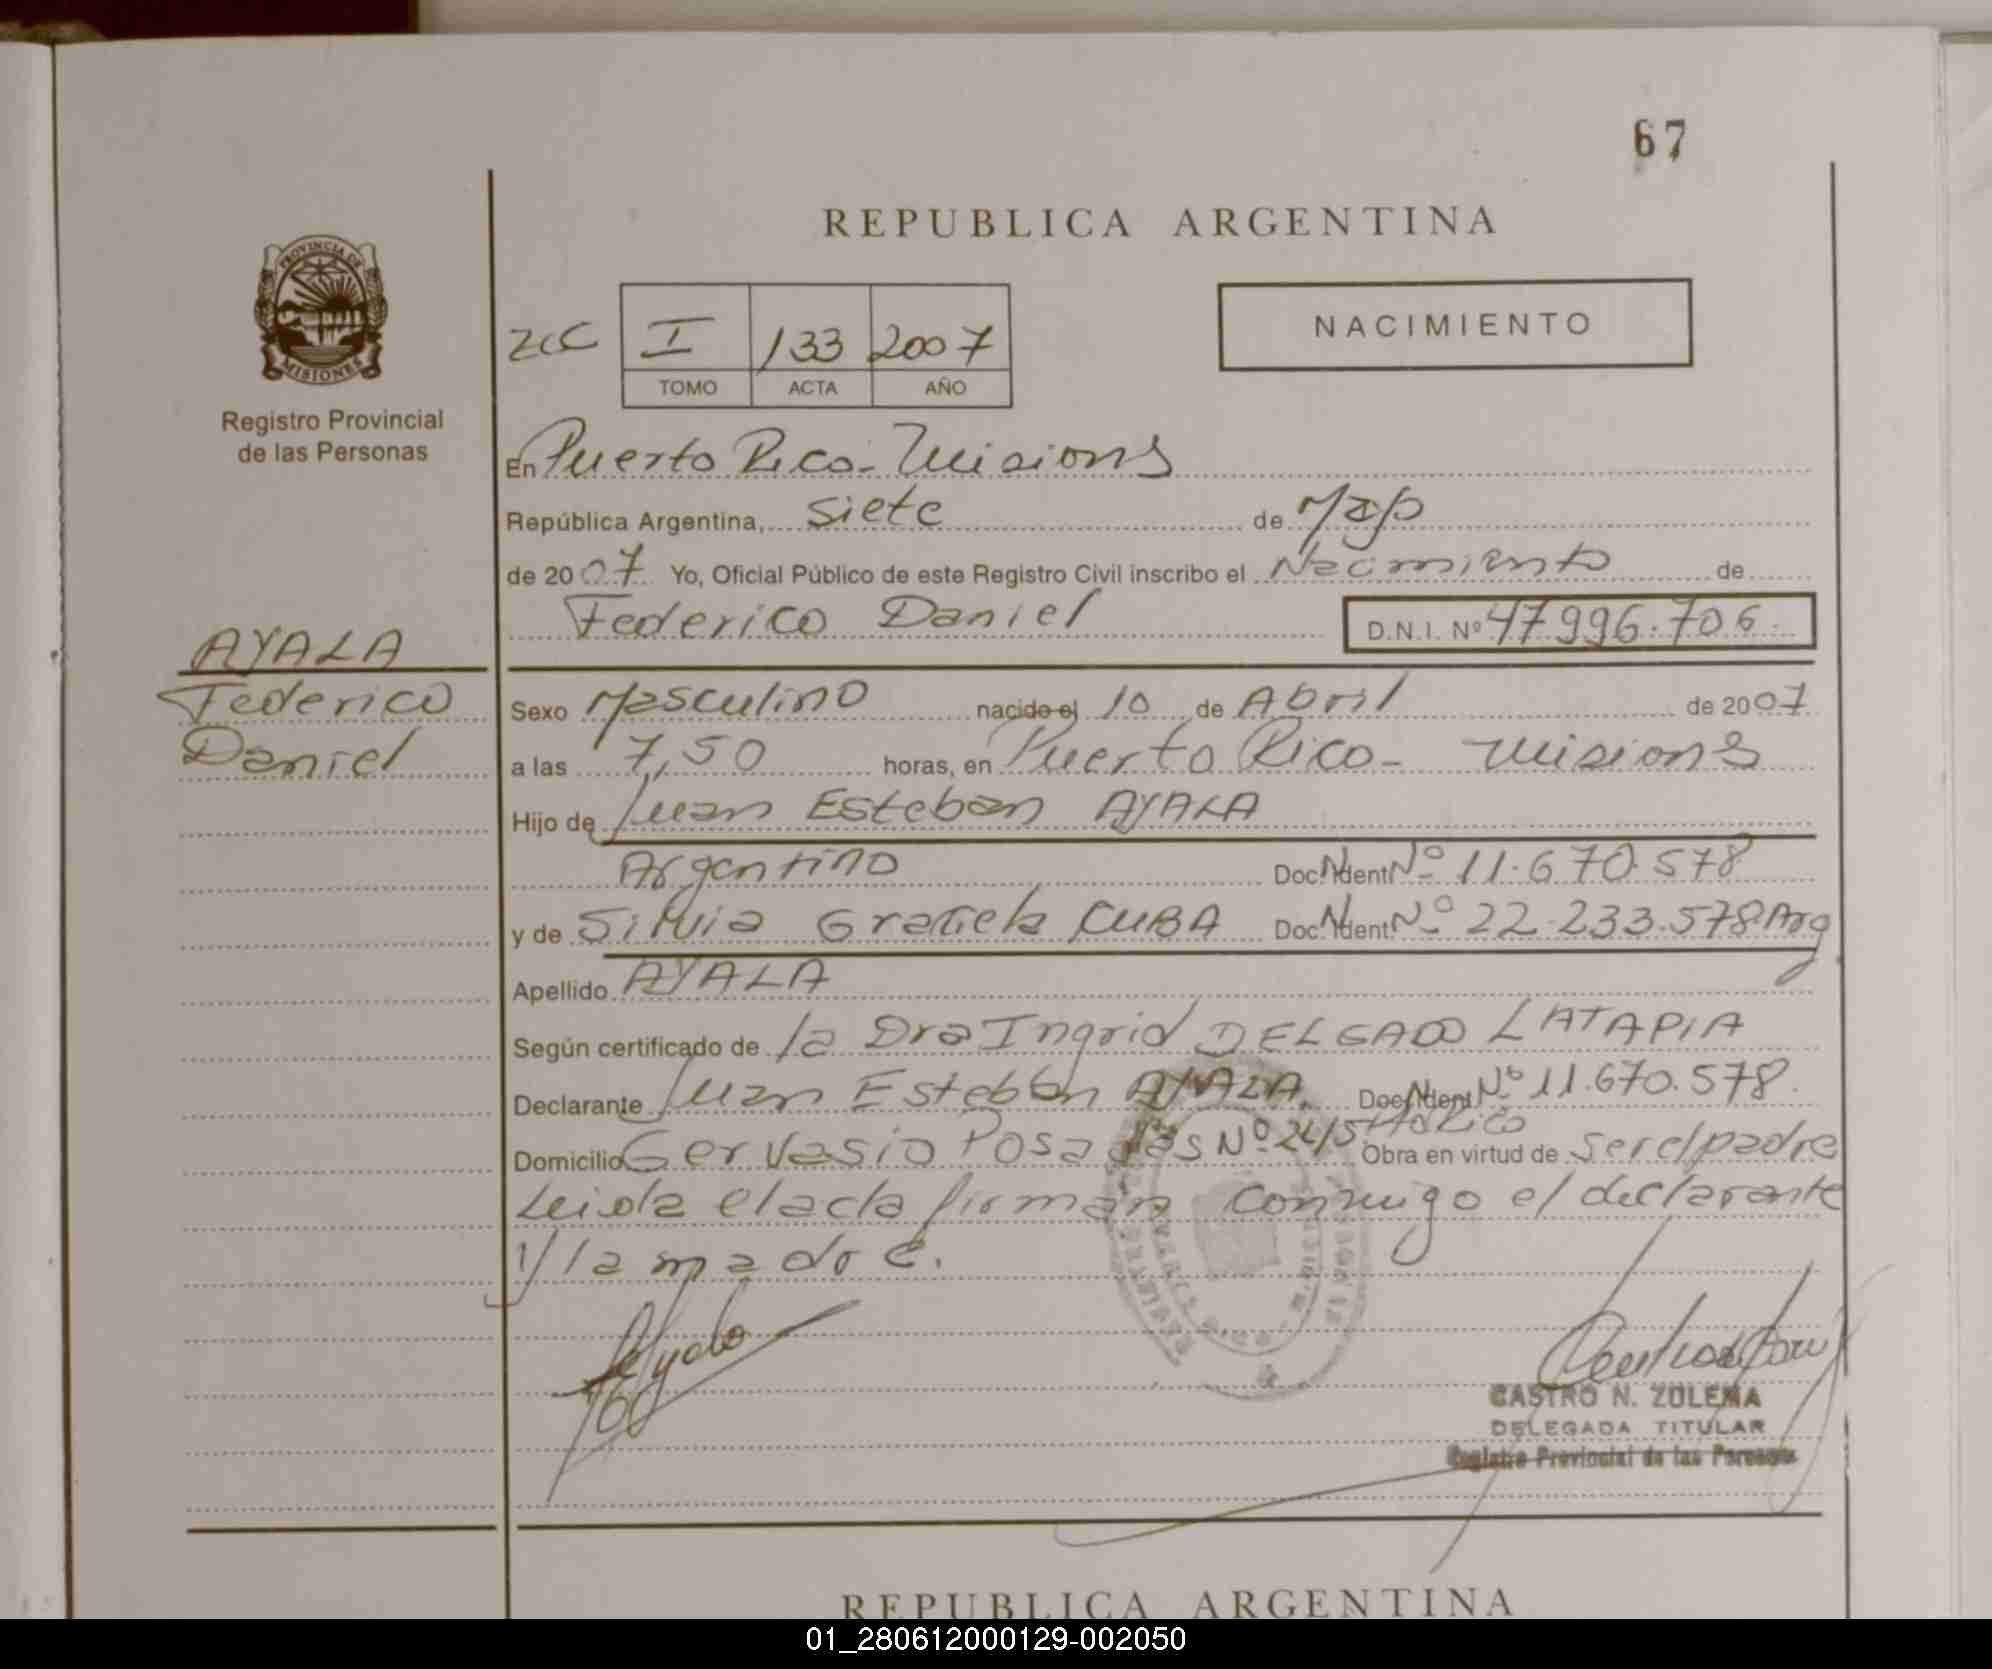 67
REPUBLICA ARGENTINA
PROVINCIA DE
MISIONES
Registro Provincial
de las Personas
NACIMIENTO
I 133 2007
TOMO ACTA AÑO
En Puerto Rico - Misiones
República Argentina, siete de Mayo
de 2007 Yo, Oficial Público de este Registro Civil inscribo el Nacimiento de
Federico Daniel D.N.I. Nº 47.996.706
AYALA
Federico
Daniel
Sexo Masculino nacido el 10 de Abril de 2007
a las 7,50 horas, en Puerto Rico - Misiones
Hijo de Juan Esteban AYALA
Argentino Doc. Ident Nº 11.670.578
y de Silvia Graciela CUBA Doc. Ident Nº 22.233.578 Arg
Apellido AYALA
Según certificado de la Dra Ingrid DELGADO LATAPIA
Declarante Juan Esteban AYALA. Doc. Ident Nº 11.670.578.
Domicilio Gervasio Posadas Nº 245 Pto Rico Obra en virtud de ser el padre
Leida el acta firman conmigo el declarante
y la madre.
CASTRO N. ZULEMA
DELEGADA TITULAR
Registro Provincial de las Personas
REPUBLICA ARGENTINA
01_280612000129-002050